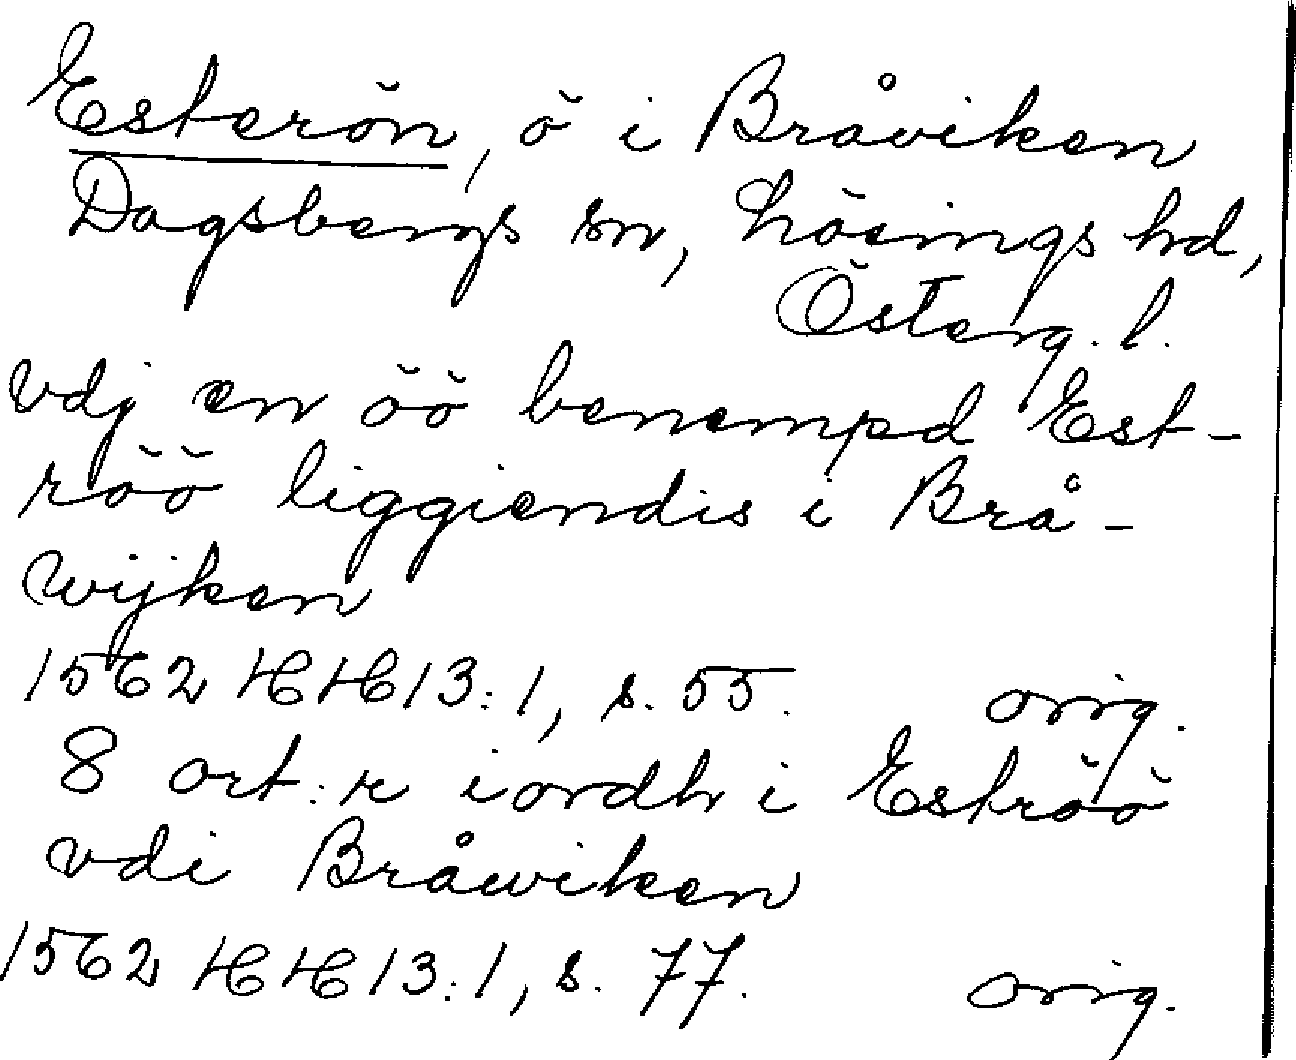 Esterön, ö i Bråviken
Dagsbergs sn, Lösings hd,
Österg. l.
vdj en öö benempd Est-
röö liggiendis i Brå-
wijken
1562 HH 13:1, s. 55. orig.
8 ort:r iordh i Eströö
vdi Bråwiken
1562 HH 13:1, s. 77. orig.